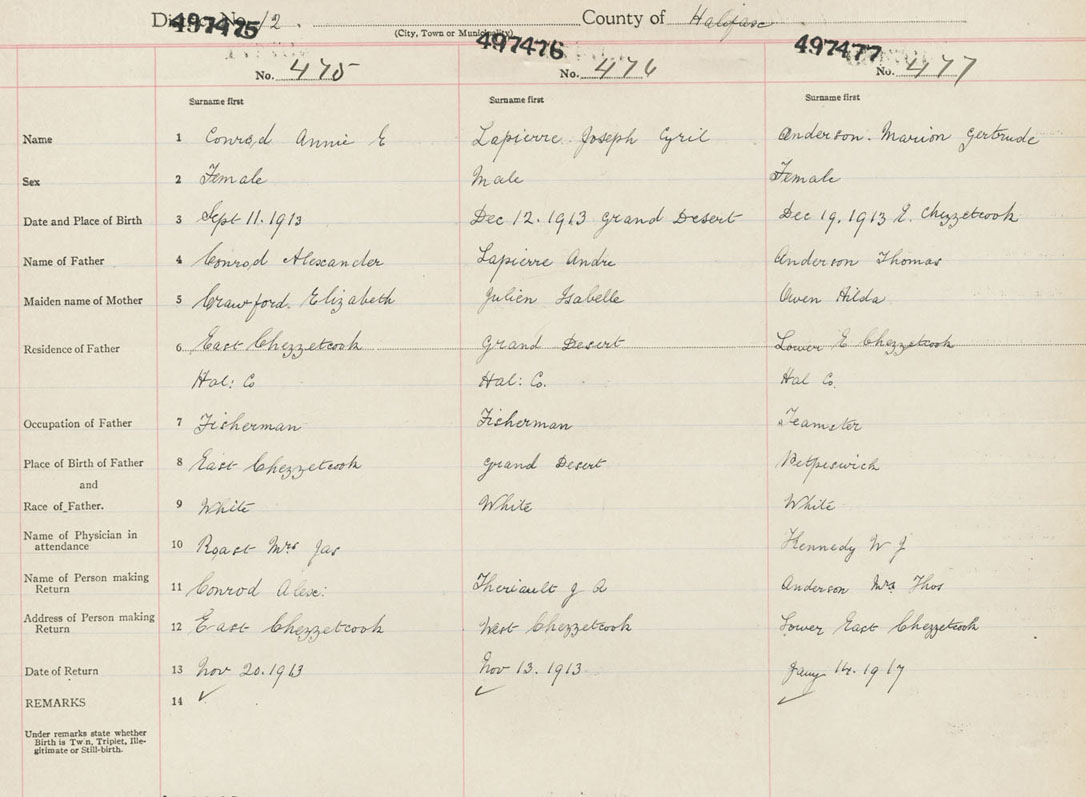 District No. 12 County of Halifax
(City, Town or Municipality)
497475 497476 497477
No. 475 No. 476 No. 477
Surname first Surname first Surname first
Name 1 Conrod Annie E Lapierre Joseph Cyril Anderson. Marion Gertrude
Sex 2 Female Male Female
Date and Place of Birth 3 Sept 11. 1913 Dec 12. 1913 Grand Desert Dec 19. 1913 E. Chezzetcook
Name of Father 4 Conrod Alexander Lapierre Andre Anderson Thomas
Maiden name of Mother 5 Crawford. Elizabeth Julien Isabelle Owen Hilda
Residence of Father 6 East Chezzetcook Grand Desert Lower E Chezzetcook
Hal: Co Hal: Co. Hal Co.
Occupation of Father 7 Fisherman Fisherman Teamster
Place of Birth of Father 8 East Chezzetcook Grand Desert Petpeswick
and
Race of Father. 9 White White White
Name of Physician in attendance 10 Roast Mrs Jas Kennedy W J
Name of Person making Return 11 Conrod Alex: Theriault J A Anderson Mrs Thos
Address of Person making Return 12 East Chezzetcook West Chezzetcook Lower East Chezzetcook
Date of Return 13 Nov 20. 1913 Nov 13. 1913 Jany 14. 1917
REMARKS 14 ✓ ✓ ✓
Under remarks state whether
Birth is Twin, Triplet, Ille-
gitimate or Still-birth.